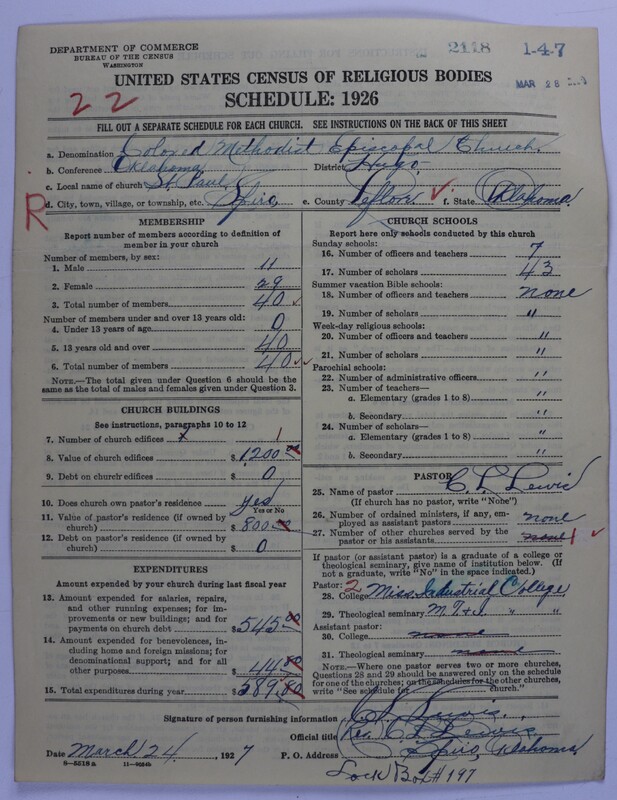 DEPARTMENT OF COMMERCE
BUREAU OF THE CENSUS
WASHINGTON
2118
1-4-7
MAR 28
22
UNITED STATES CENSUS OF RELIGIOUS BODIES
SCHEDULE: 1926
FILL OUT A SEPARATE SCHEDULE FOR EACH CHURCH. SEE INSTRUCTIONS ON THE BACK OF THIS SHEET
a. Denomination Colored Methodist Episcopal Church.
b. Conference Oklahoma District Hugo
c. Local name of church St. Paul
R
d. City, town, village, or township, etc. Spiro e. County Leflore f. State Oklahoma
MEMBERSHIP
Report number of members according to definition of member in your church
Number of members, by sex:
1. Male 11
2. Female 29
3. Total number of members 40
Number of members under and over 13 years old:
4. Under 13 years of age 0
5. 13 years old and over 40
6. Total number of members 40
NOTE.—The total given under Question 6 should be the same as the total of males and females given under Question 3.
CHURCH BUILDINGS
See instructions, paragraphs 10 to 12
7. Number of church edifices 1
8. Value of church edifices $1200.00
9. Debt on church edifices $ 0
10. Does church own pastor's residence yes
Yes or No
11. Value of pastor's residence (if owned by church) $ 800
12. Debt on pastor's residence (if owned by church) $ 0
EXPENDITURES
Amount expended by your church during last fiscal year
13. Amount expended for salaries, repairs, and other running expenses; for improvements or new buildings; and for payments on church debt $545.00
14. Amount expended for benevolences, including home and foreign missions; for denominational support; and for all other purposes $44.80
15. Total expenditures during year $589.80
CHURCH SCHOOLS
Report here only schools conducted by this church
Sunday schools:
16. Number of officers and teachers 7
17. Number of scholars 43
Summer vacation Bible schools:
18. Number of officers and teachers none
19. Number of scholars "
Week-day religious schools:
20. Number of officers and teachers "
21. Number of scholars "
Parochial schools:
22. Number of administrative officers "
23. Number of teachers—
a. Elementary (grades 1 to 8) "
b. Secondary "
24. Number of scholars—
a. Elementary (grades 1 to 8) "
b. Secondary "
PASTOR
25. Name of pastor C. L. Lewis
(If church has no pastor, write "None")
26. Number of ordained ministers, if any, employed as assistant pastors none
27. Number of other churches served by the pastor or his assistants none 1
If pastor (or assistant pastor) is a graduate of a college or theological seminary, give name of institution below. (If not a graduate, write "No" in the space indicated.)
Pastor: 2
28. College Miss. Industrial College
29. Theological seminary M. I. " "
Assistant pastor:
30. College none
31. Theological seminary none
NOTE.—Where one pastor serves two or more churches, Questions 28 and 29 should be answered only on the schedule for one of the churches; on the schedules for the other churches, write "See schedule for ____ church."
Signature of person furnishing information C. L. Lewis.
Official title Rev. C. L. Lewis
Date March 24, 1927 P. O. Address Spiro, Oklahoma
8—5518a
Lock Box # 197